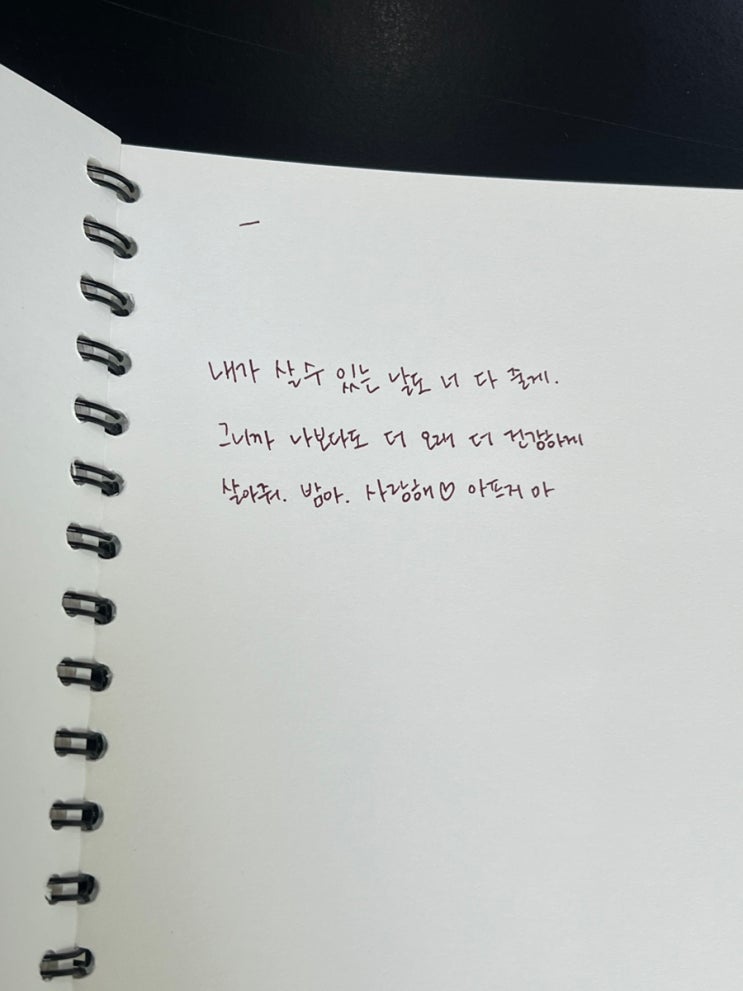 내가 살수 있는 날도 너 다 줄게.
그니까 나보다도 더 오래 더 건강하게
살아줘. 밤아. 사랑해♡ 아프지 마